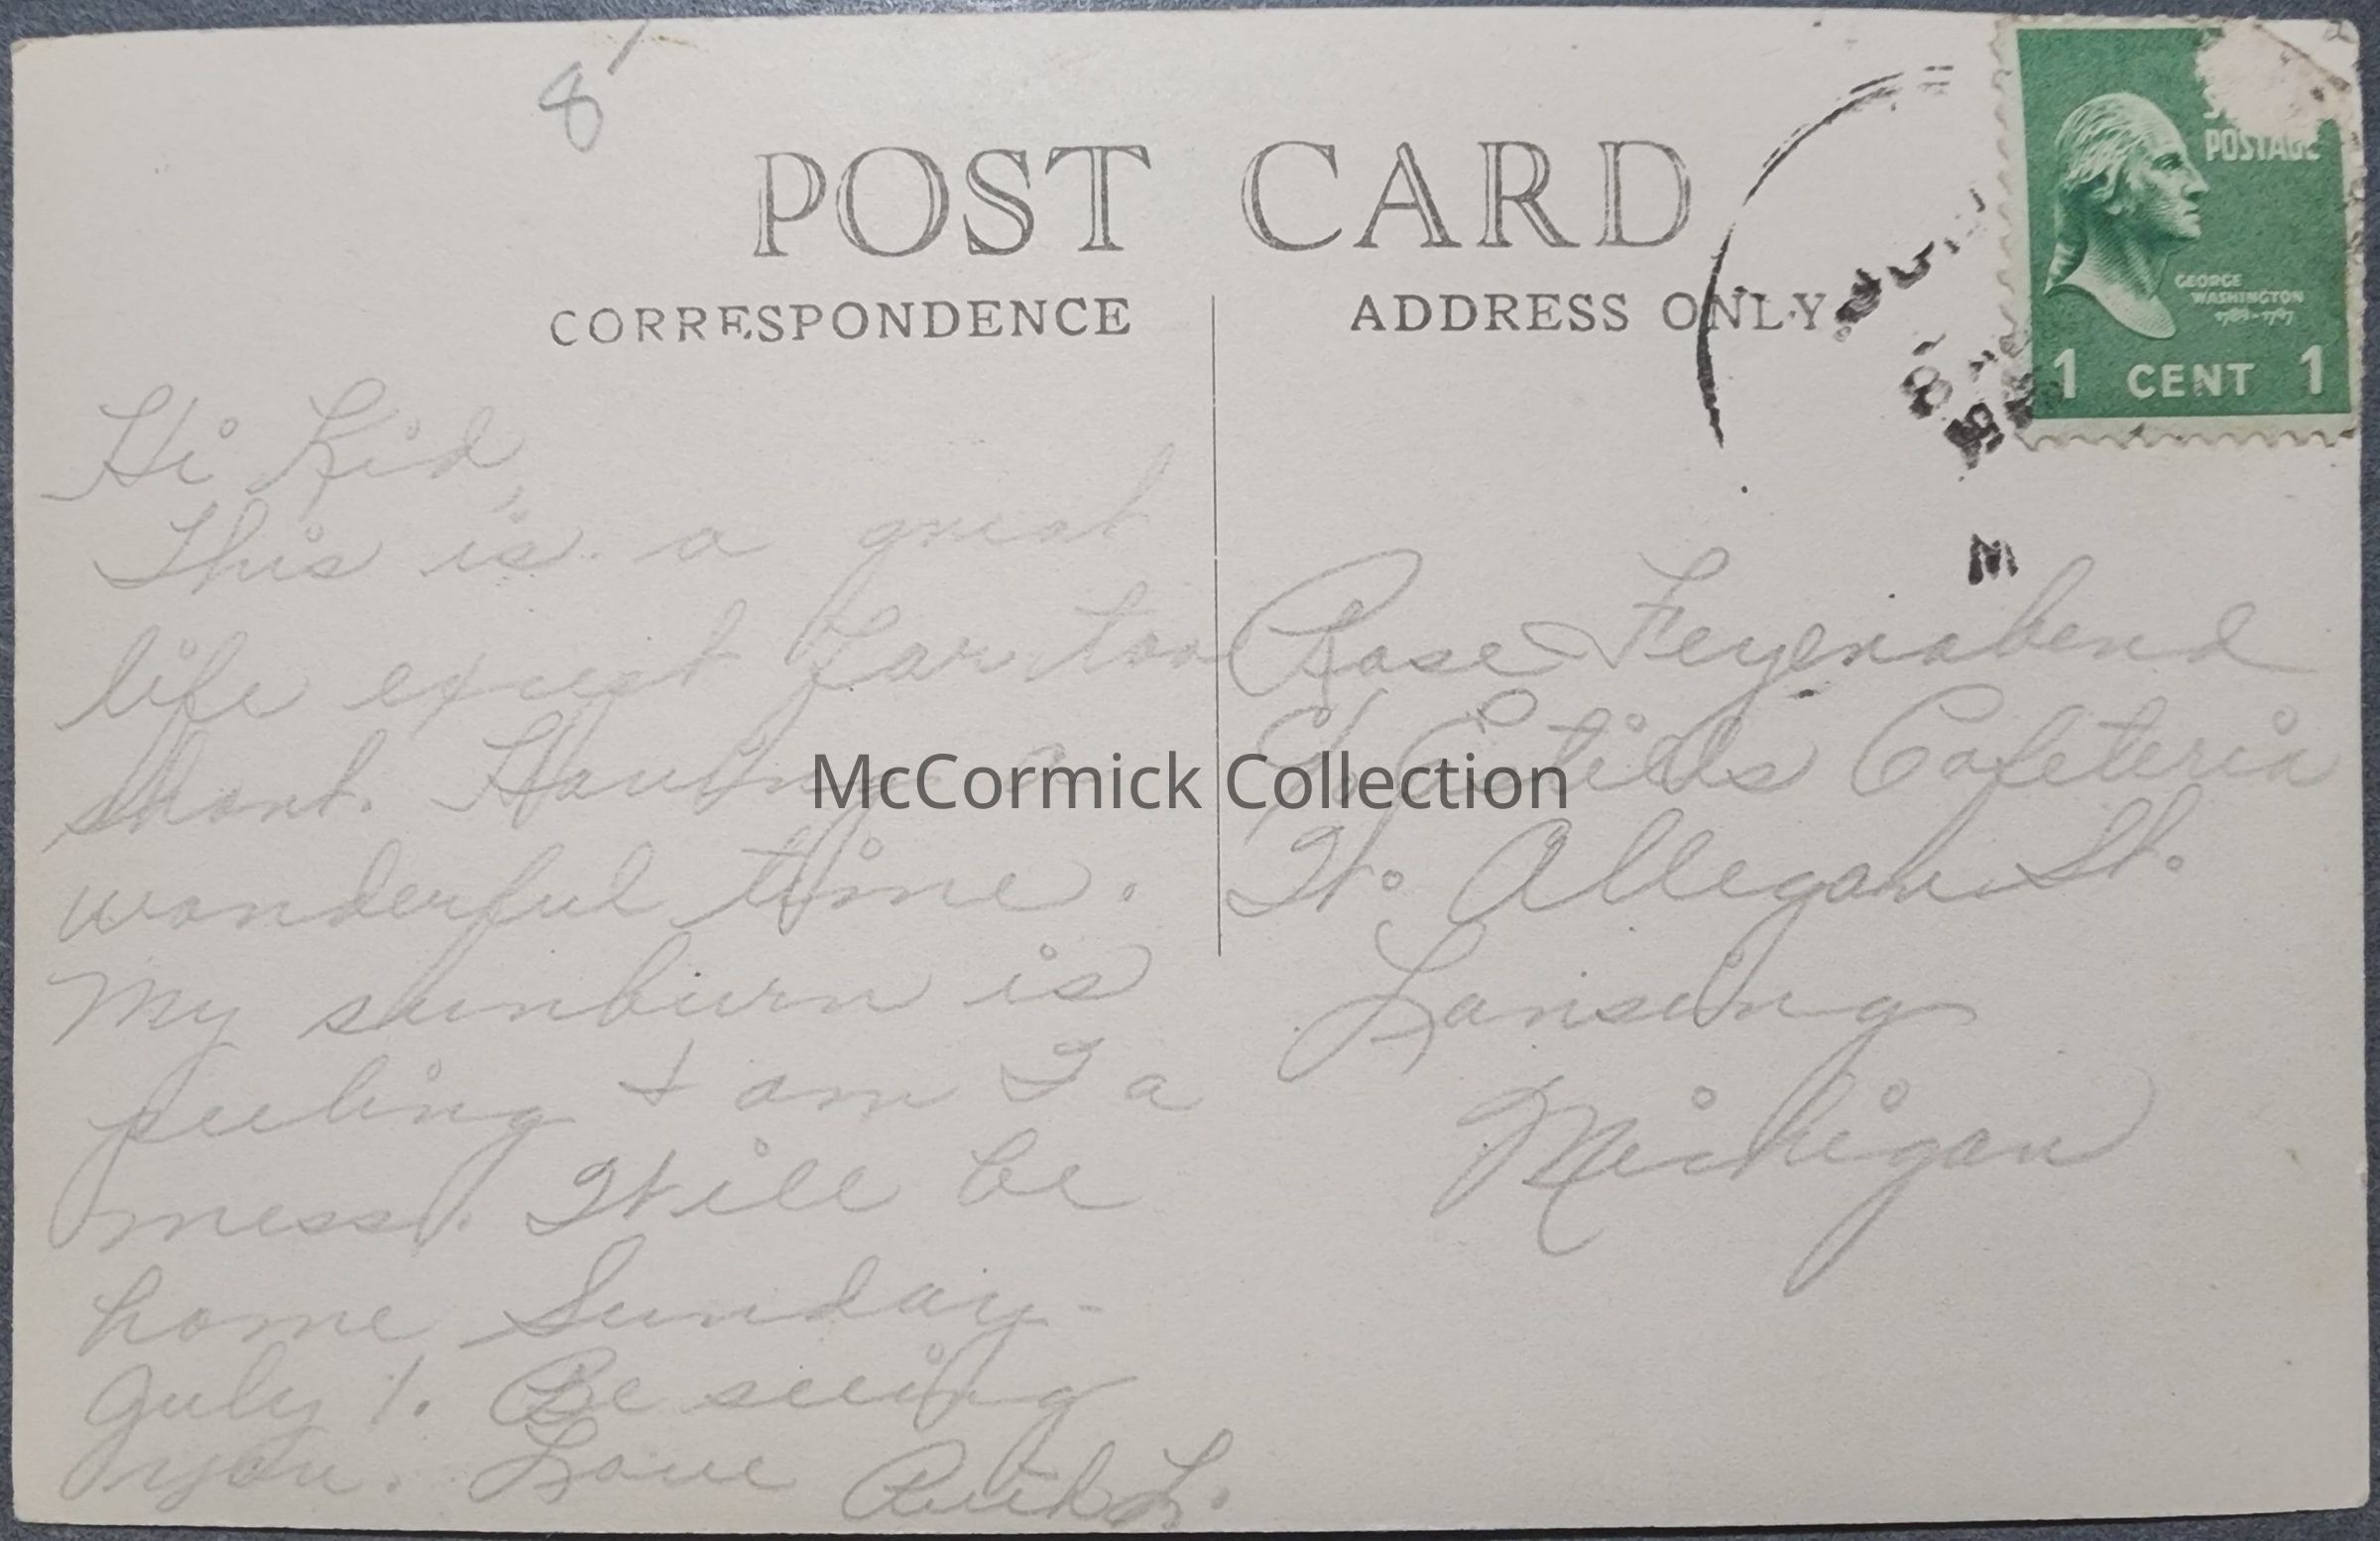 8
POST CARD
CORRESPONDENCE
ADDRESS ONLY
POSTAGE
GEORGE
WASHINGTON
1789-1797
1 CENT 1
M
Hi Kid,
This is a great
life except far too
short. Having a
wonderful time.
My sunburn is
peeling & am I a
mess. Will be
home Sunday-
July 1. Be seeing
you. Love Ruth L.
Rose Feyenabend
c/o Estills Cafeteria
W. Allegan St.
Lansing
Michigan
McCormick Collection